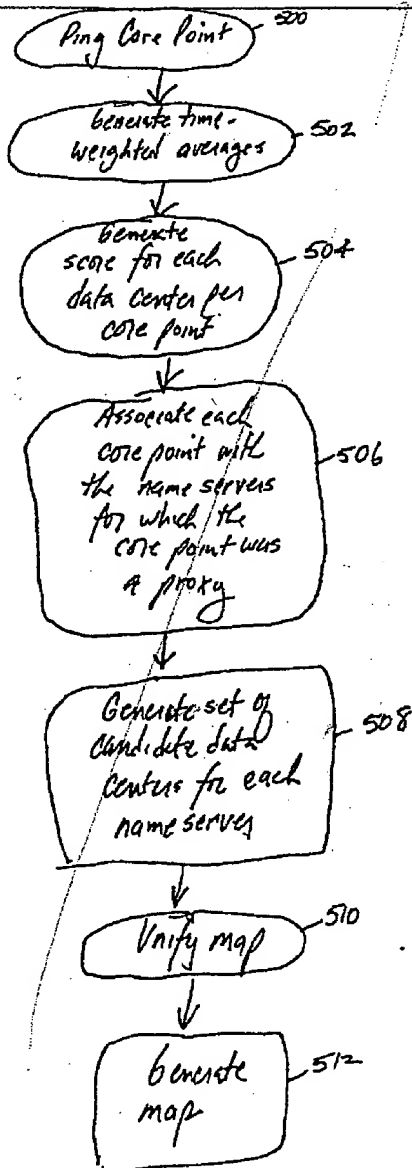 Ping Core Point
500
Generate time-
weighted averages
502
Generate
score for each
data center per
core point
504
Associate each
core point with
the name servers
for which the
core point was
a proxy
506
Generate set of
candidate data
centers for each
name server
508
Unify map
510
Generate
map
512